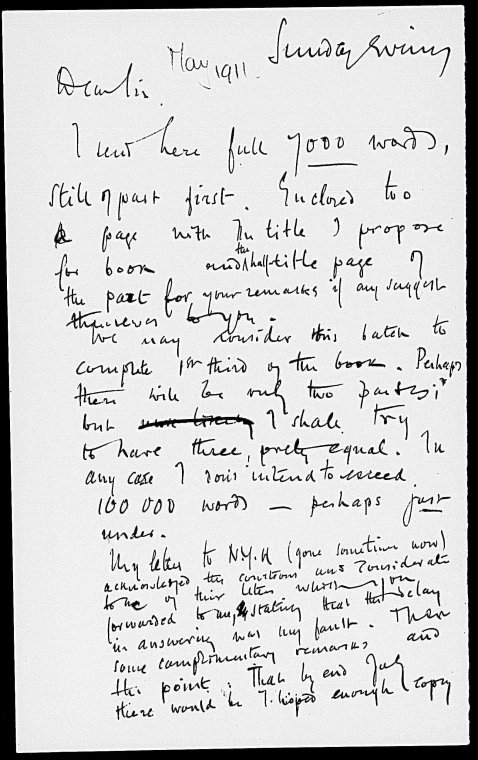 May 1911. Sunday Evening
Dear Sir.
I send here full 7000 words,
Still of part first. Enclosed too
a page with the title I propose
for book and the half-title page of
the part for your remarks if any suggest
themselves to you.
We may consider this batch to
complete 1st third of the book. Perhaps
there will be only two parts;
but I shall try
to have three, pretty equal. In
any case I don't intend to exceed
100 000 words — perhaps just
under.
My letter to N.Y.H (gone sometime now)
acknowledged the courteous and considerate
tone of their letter which you
forwarded to me, stating that the delay
in answering was my fault. Then
some complimentary remarks and
the point. That by end July
there would be I hoped enough copy